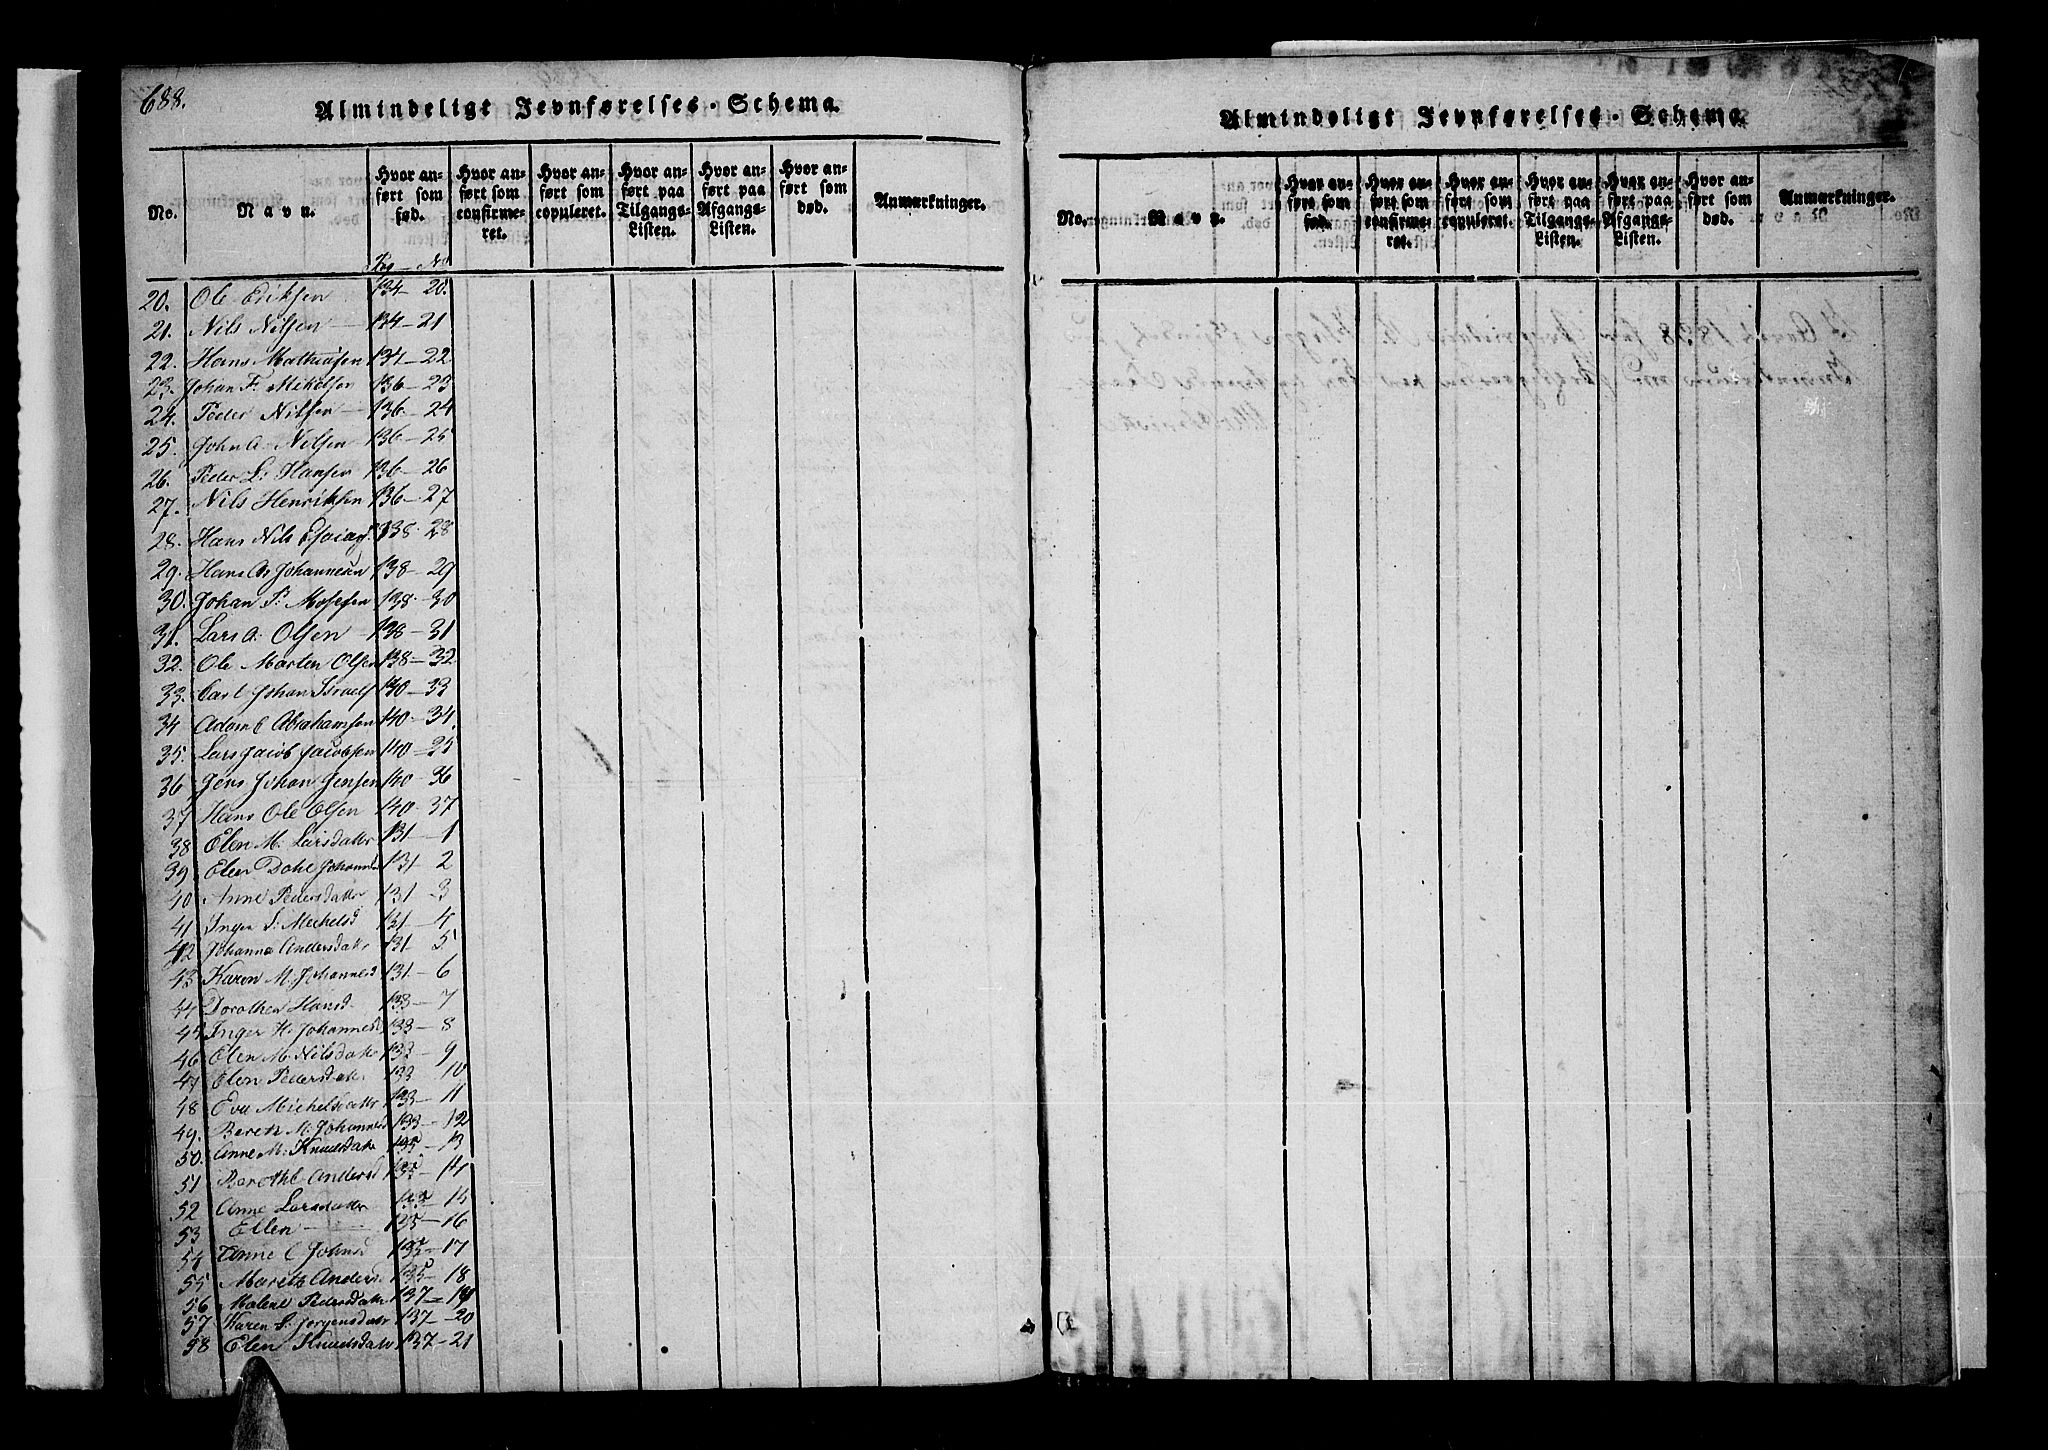 688.
Almindeligt Jevnførelses-Schema.
No.
Navn.
Hvor anført som fød.
Hvor anført som confirmeret.
Hvor anført som copuleret.
Hvor anført paa Tilgangs-Listen.
Hvor anført paa Afgangs-Listen.
Hvor anført som død.
Anmærkninger.
Pag — No
20. Ole Eriksen 134 — 20.
21. Nils Nilsen 134 — 21
22. Hans Mathiasen 134 — 22
23. Johan F. Mikelsen 136 — 23
24. Peder Nilsen 136 — 24
25. John A. Nilsen 136 — 25
26. Peder L. Hansen 136 — 26
27. Nils Henriksen 136 — 27
28. Hans Nils Esaias. 138 — 28
29. Hans As Johannesen 138 — 29
30. Johan P. Mosesen 138 — 30
31. Lars A. Olsen 138 — 31
32. Ole Morten Olsen 138 — 32
33. Carl Johan Israels 130 — 33
34 Adam C Abrahamsen 140 — 34
35. Lars Jacob Jacobsen 140 — 35
36 Jens Johan Jensen 140 — 36
37 Hans Ole Olsen 140 — 37
38 Elen M. Larsdattr 131 — 1
39 Elen Dohl Johannsd 131 — 2
40 Anne Pedersdattr 131 — 3
41 Inger S. Michelsd 131 — 4
42 Johanna Andersdattr 131 — 5
43 Karen M. Johannesd 131 — 6
44 Dorothea Hansd. 133 — 7
45 Inger H. Johannesd 133 — 8
46 Elen M. Nilsdattr 133 — 9
47 Elen Pedersdattr 133 10
48 Eva Michelsdattr 133 — 11
49. Bereth M. Johannesd 133 — 12
50. Anne M. Knudsdattr 135 — 13
51 Bereth C Andersd 135 — 14
52 Anne Larsdattr 135 — 15
53 Ellen 135 — 16
54 Anne C Johnsd 135 — 17
55 Mareth Anders. 135 — 18
56 Malene Pedersdattr 137 — 19
57 Karen S. Jørgensdattr 137 — 20
58 Elen Knudsdattr 137 — 21
Almindeligt Jevnførelses-Schema.
No.
Navn.
Hvor anført som fød.
Hvor anført som confirmeret.
Hvor anført som copuleret.
Hvor anført paa Tilgangs-Listen.
Hvor anført paa Afgangs-Listen.
Hvor anført som død.
Anmærkninger.